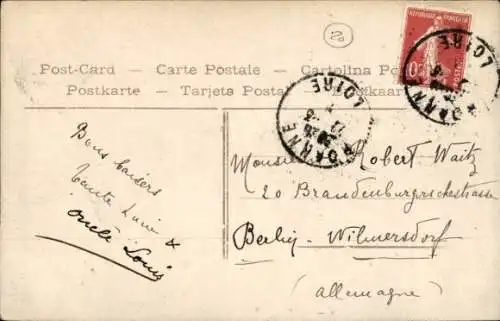 20
REPUBLIQUE FRANÇAISE
Post-Card - Carte Postale - Cartolina
Postkarte - Tarjeta Postal
ROANNE
LOIRE
ROANNE
LOIRE
Bons baisers
Tante Lucie &
oncle Louis
Monsieur Robert Waitz
20 Brandenburgischestrasse
Berlin-Wilmersdorf
(Allemagne)